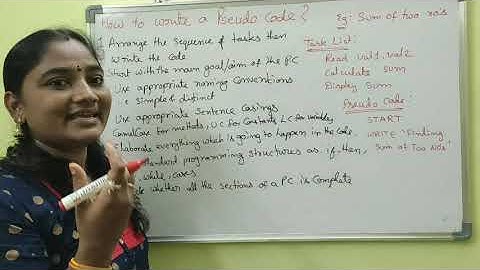 How to write a Pseudo Code?
1 Arrange the sequence of tasks then
Write the Code
Start with the main goal/aim of the PC
Use appropriate naming Conventions
Simple & distinct
Use appropriate Sentence Casings
CamelCase for methods, UC for Constants LC for variables
Elaborate everything which is going to happen in the Code.
standard programming structures as if, then,
while, cases
whether all the sections of a PC is Complete
Eg: Sum of two no's
Task List:
Read val1, val2
Calculate Sum
Display Sum
Pseudo Code:
START
WRITE 'Finding
Sum of Two Nos'